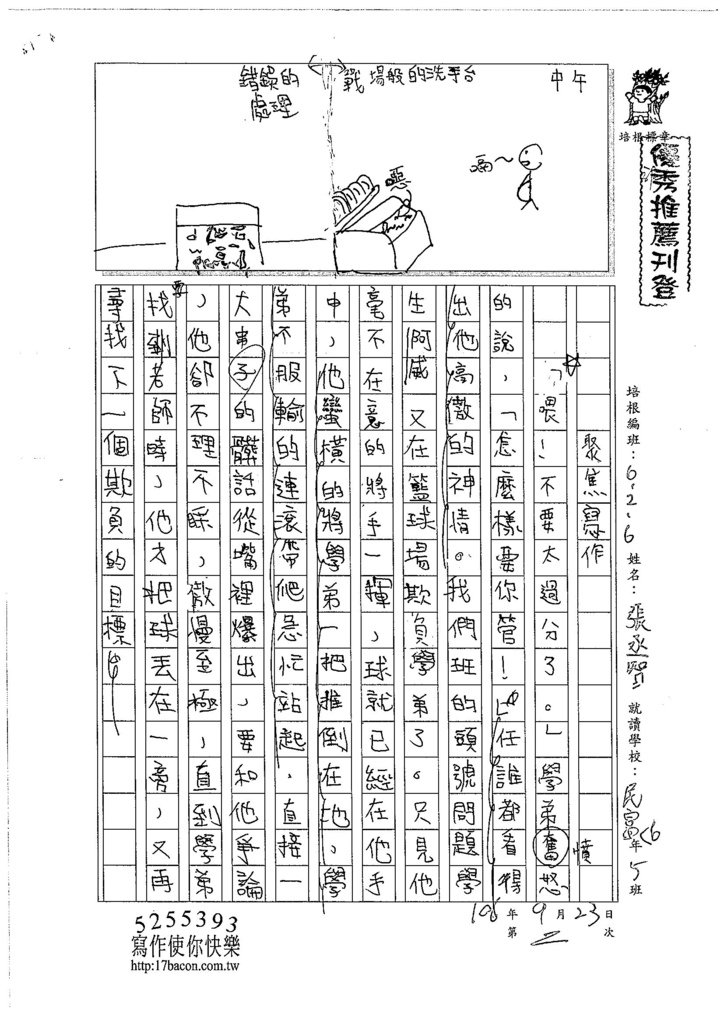 錯鍛的
處理
戰場般的洗手台
中午
嗝～
噁
培根標章
優秀推薦刊登
培根編班：6.2.6 姓名：張丞賢 就讀學校：民富 6年5班
聚焦寫作
「喂！不要太過分了。」學弟奮怒
憤
的說，「怎麼樣要你管！」任誰都看得
出他高傲的神情。我們班的頭號問題學
生阿威又在籃球場欺負學弟了。只見他
毫不在意的將手一揮，球就已經在他手
中，他蠻橫的將學弟一把推倒在地，學
弟不服輸的連滾帶爬急忙站起，直接一
大串子的髒話從嘴裡爆出，要和他爭論
，他卻不理不睬，傲慢至極，直到學弟
找到老師時，他才把球丟在一旁，又再
要
尋找下一個欺負的目標。
106年9月23日
第2次
5255393
寫作使你快樂
http:17bacon.com.tw